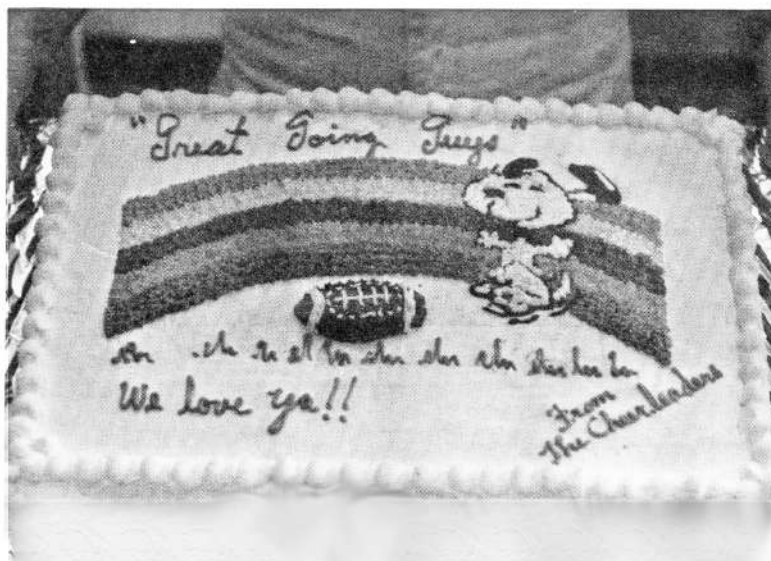 "Great Going Guys"
We love ya!!
From
The Cheerleaders